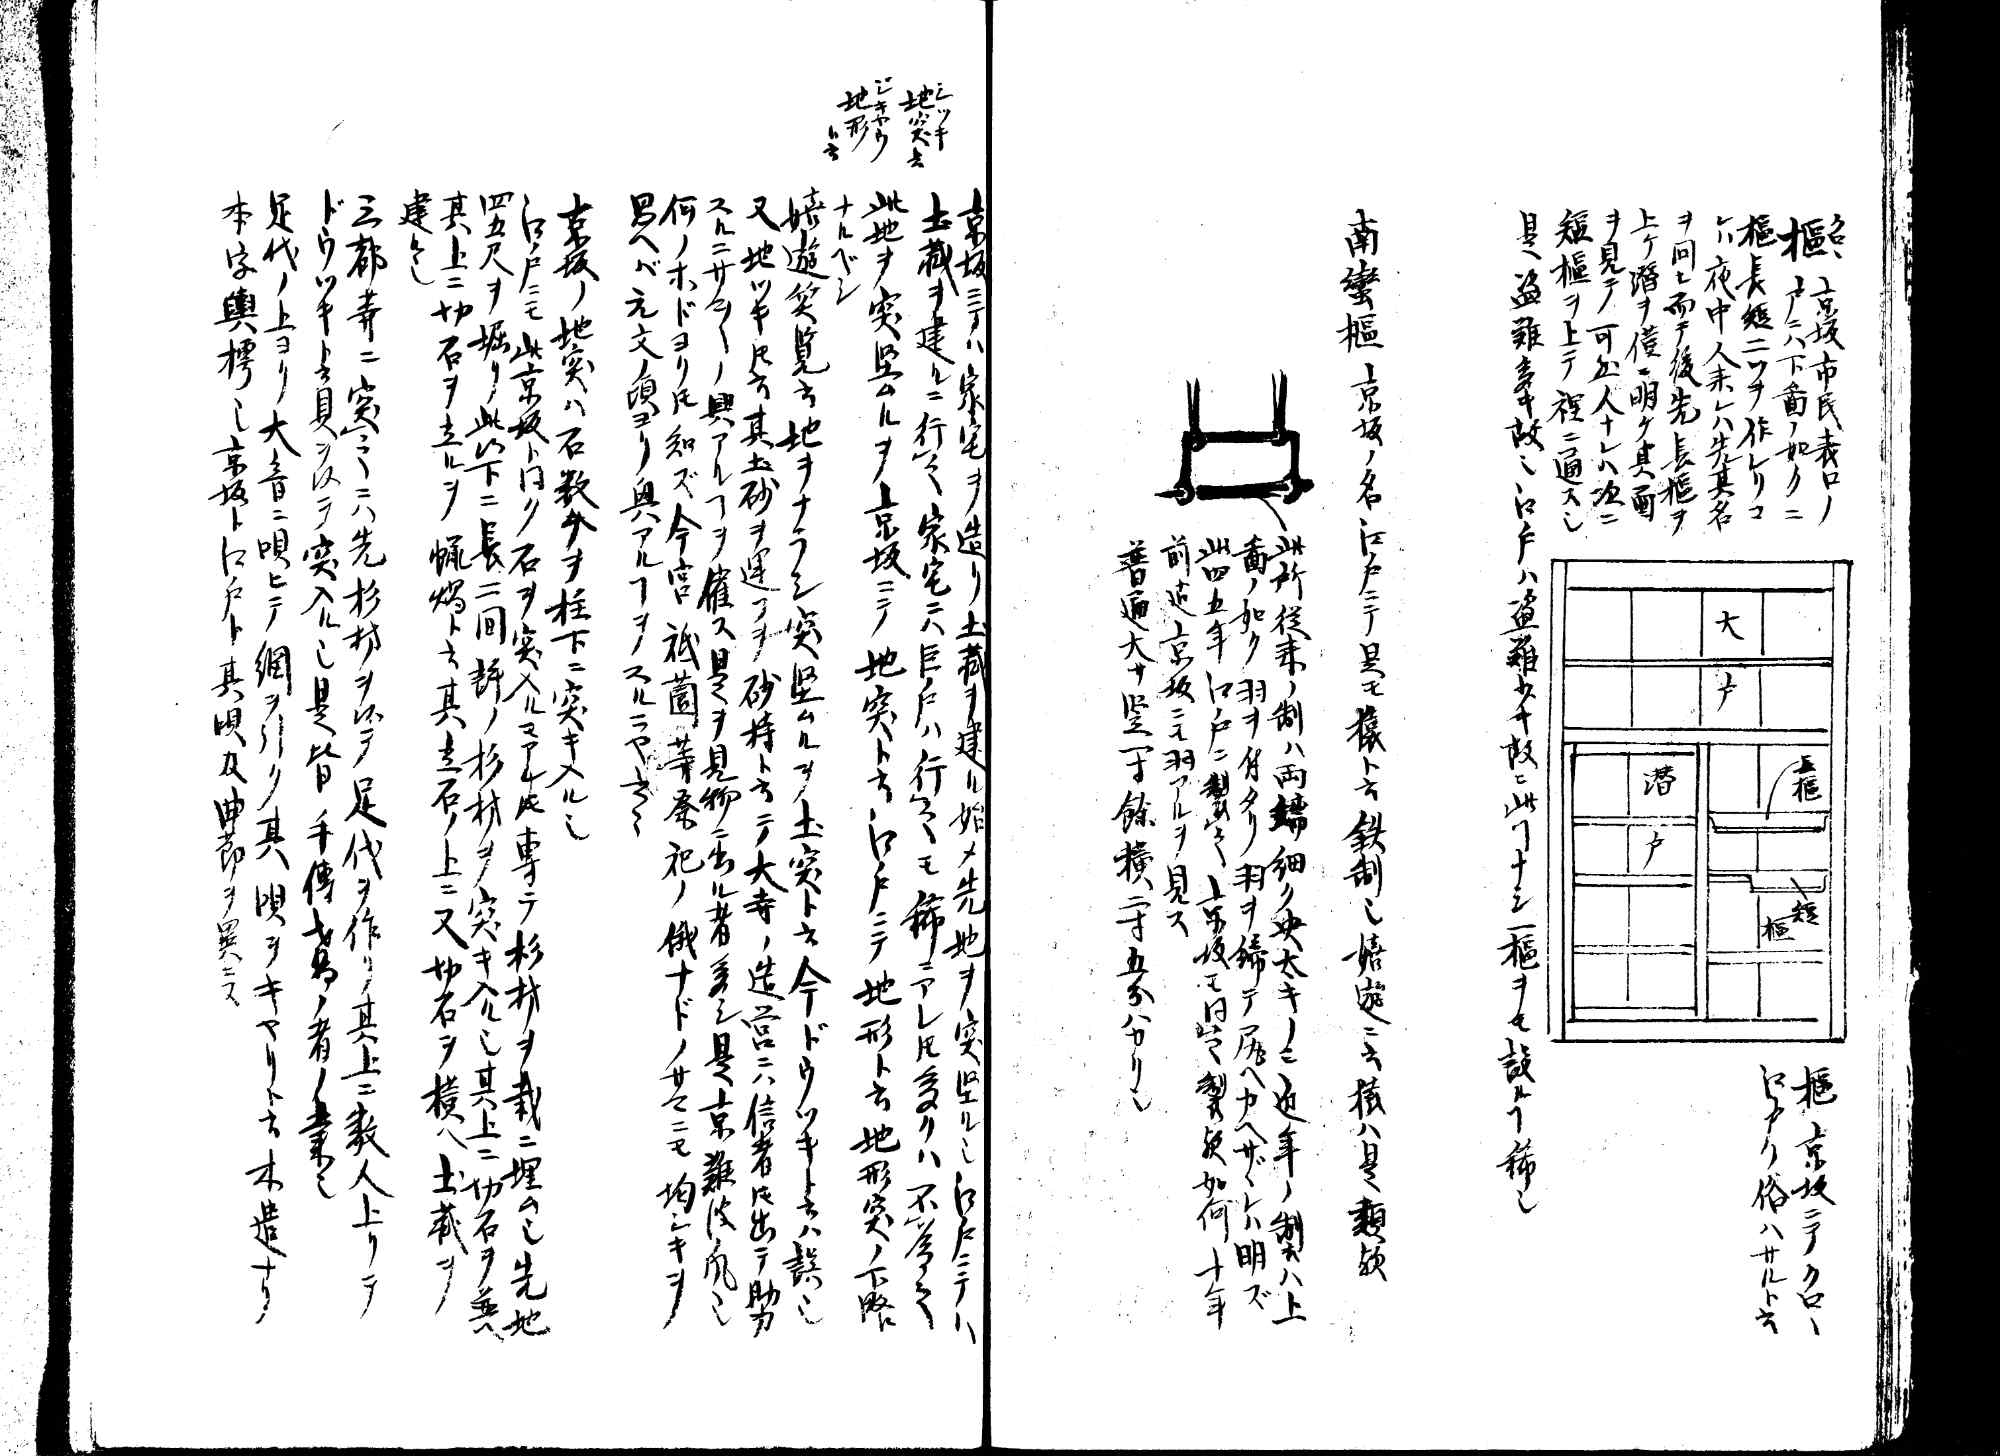 クロヽ
樞 京坂市民表口ノ
戸ニハ下畵ノ如クニ
樞長短二ツヲ作レリコ
レハ夜中人来レハ先其名
ヲ問ヒ而テ後先長樞ヲ
上ケ潜ヲ僅ニ明ケ其面
ヲ見テ可然人ナレハ次ニ
短樞ヲ上テ裡ニ通ス也
是盗難多キ故也江戸ハ盗難少キ故ニ此コナシ一樞ヲモ設ルコ稀也
大
戸
潜
戸
長樞
短
樞
樞 京坂ニテクロヽ
江戸ノ俗ハサルト云
南蛮樞 京坂ノ名江戸ニテ是モ猿ト云鉄制也嬉遊ニ云猿ハ是類歟
此所従来ノ制ハ両端細ク央太キノミ近年ノ制ハ上
畵ノ如ク羽ヲ付タリ羽ヲ締テ尻ヘカヘサヾレハ明ズ
此四五年江戸ニ製之京坂モ同ク製歟如何十年
前迠京坂ニモ羽アルヲ見ス
普通大サ竪一寸餘横二寸五分ハカリ也
ヂツキ
地突云
ヂギヤウ
地形
ト云
京坂ニテハ家宅ヲ造リ土蔵ヲ建ル始メ先地ヲ突堅ル也江戸ニテハ
土蔵ヲ建ルニ行之家宅ニハ巨戸ハ行之モ稀ニアレ𪜈多クハ不為之
此地ヲ突堅ムルヲ上京坂ニテ地突ト云江戸ニテ地形ト云地形突ノ下略
ナルベシ
嬉遊笑覧云地ヲナラシ突堅ムルヲ土突ト云今ドウツキト云ハ誤也
又地ツキ𪜈云其土砂ヲ運フヲ砂持ト云テ大寺ノ造営ニハ信者𪜈出テ助力
スルニサマ〳〵ノ興アルコヲ催ス是ヲ見物ニ出ル者多シ是京難波ノ風也
何ノホドヨリ𪜈知ズ今宮祇園等祭祀ノ俄ナドノサマニモ均シキヲ
思ヘバ元文ノ頃ヨリ興アルコヲノスルニヤ云々
京坂ノ地突ハ石数十ヲ柱下ニ突キ入ル也
江戸ニモ此京坂ト同ク石ヲ突入ルコアレ𪜈専ラ杉材ヲ栽ニ埋ム也先地
四五尺ヲ堀リ此以下ニ長二間許ノ杉材ヲ突キ入ル也其上ニ切石ヲ並ヘ
其上ニ切石ヲ立ルヲ蝋燭ト云其立石ノ上ニ又切石ヲ横ヘ土蔵ヲ
建ル也
三都等ニ突之ニハ先杉材ヲ以テ足代ヲ作リ其上ニ数人上リテ
ドウツキト云具ヲ以テ突入ル也是皆手傳鳶ノ者ノ業也
足代ノ上ヨリ大音ニ唄ヒテ綱ヲ引ク其唄ヲキヤリト云木造ナリ
本字輿樗也京坂ト江戸ト其唄及曲節ヲ異ニス